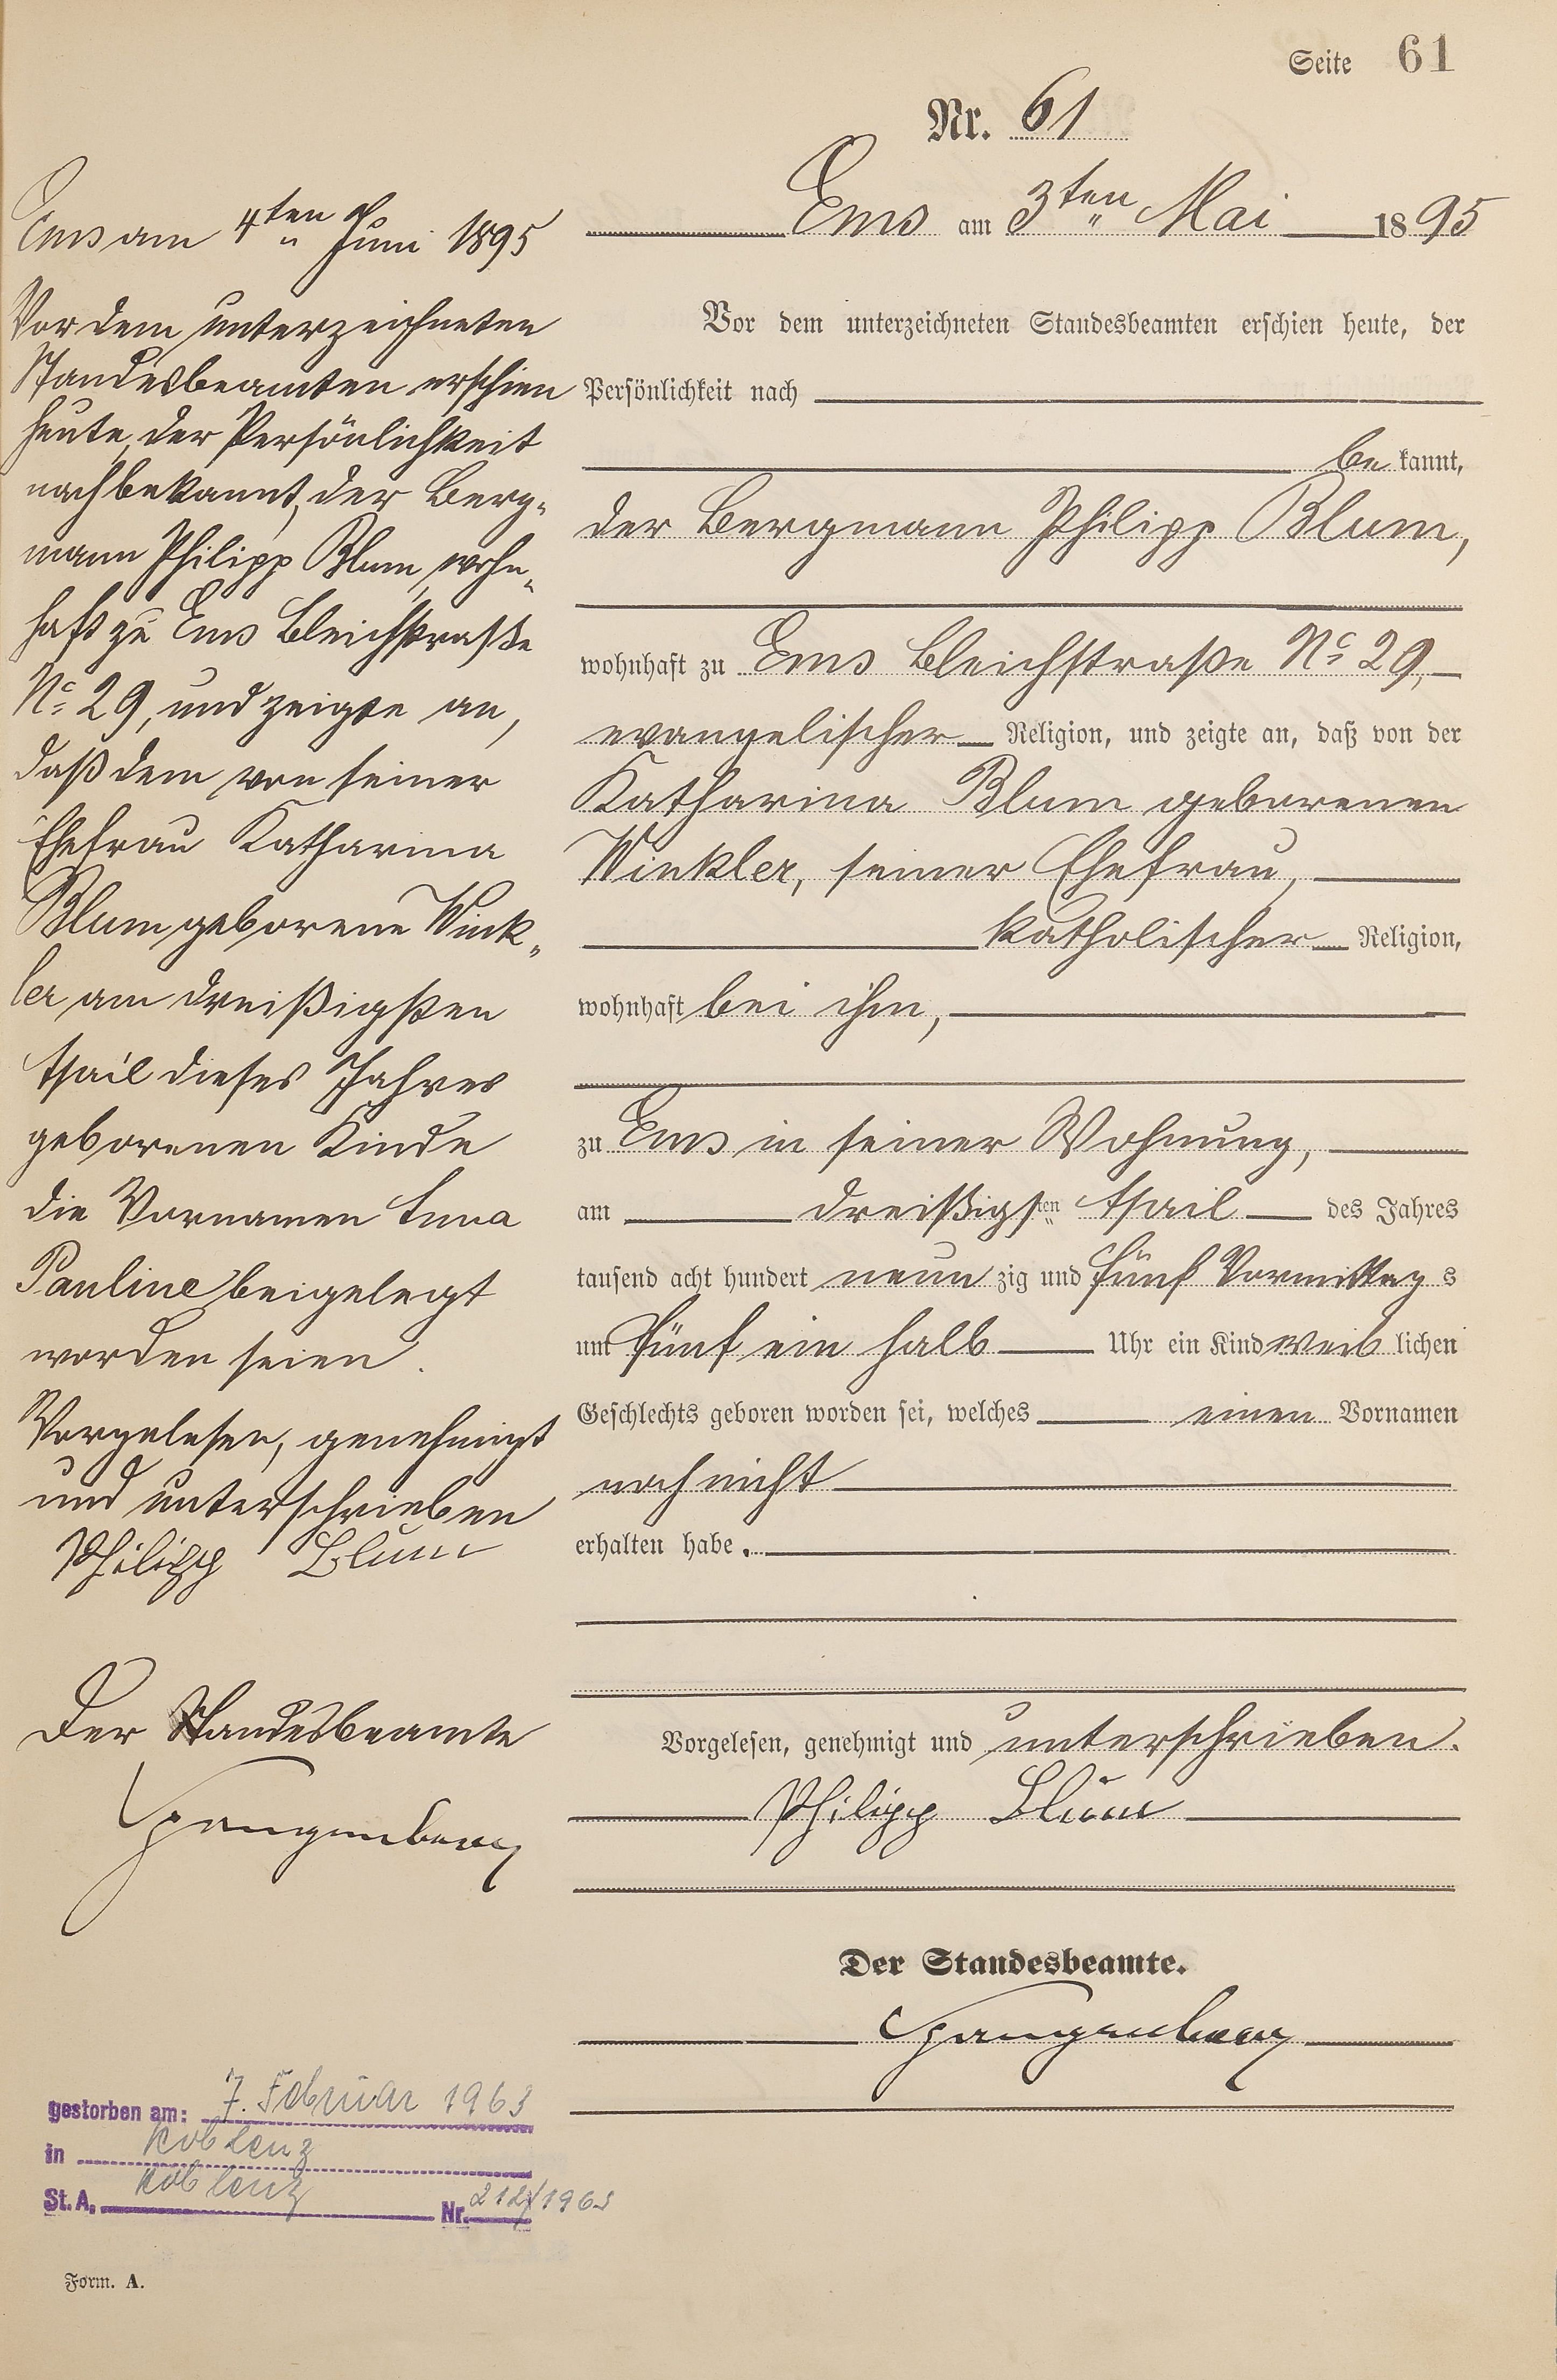 Seite 61
Nr. 61
Ems am 3ten Mai 1895
Vor dem unterzeichneten Standesbeamten erschien heute, der
Persönlichkeit nach
be kannt,
der Bergmann Philipp Blum,
wohnhaft zu Ems Bleichstraße No 29,
evangelischer Religion, und zeigte an, daß von der
Katharina Blum geborenen
Winkler, seiner Ehefrau,
katholischer Religion,
wohnhaft bei ihm,
zu Ems in seiner Wohnung,
am dreißigsten April des Jahres
tausend acht hundert neun zig und fünf Vormittag s
um fünf ein halb Uhr ein Kind weib lichen
Geschlechts geboren worden sei, welches einen Vornamen
noch nicht
erhalten habe.
Vorgelesen, genehmigt und unterschrieben.
Philipp Blum
Der Standesbeamte.
Spangenberg
Ems am 4ten Juni 1895
Vor dem unterzeichneten
Standesbeamten erschien
heute, der Persönlichkeit
nach bekannt, der Berg-
mann Philipp Blum, wohn-
haft zu Ems Bleichstraße
No 29, und zeigte an,
daß dem von seiner
Ehefrau Katharina
Blum geborene Wink-
ler am dreißigsten
April dieses Jahres
geborenen Kinde
die Vornamen Anna
Pauline beigelegt
worden seien.
Vorgelesen, genehmigt
und unterschrieben
Philipp Blum
Der Standesbeamte
Spangenberg
gestorben am: 7. Februar 1963
in Koblenz
St. A. Koblenz Nr. 212/1963
Form. A.